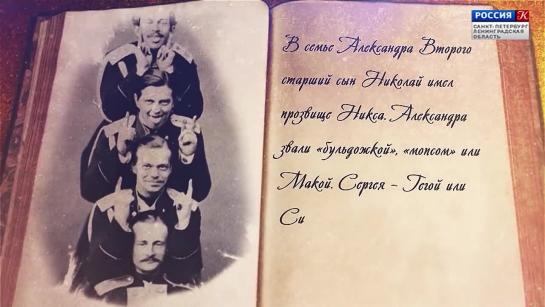 РОССИЯ К
САНКТ-ПЕТЕРБУРГ
ЛЕНИНГРАДСКАЯ
ОБЛАСТЬ
В семье Александра Второго
старший сын Николай имел
прозвище Никса. Александра
звали «бульдожкой», «мопсом» или
Макой. Сергея – Гегой или
Си